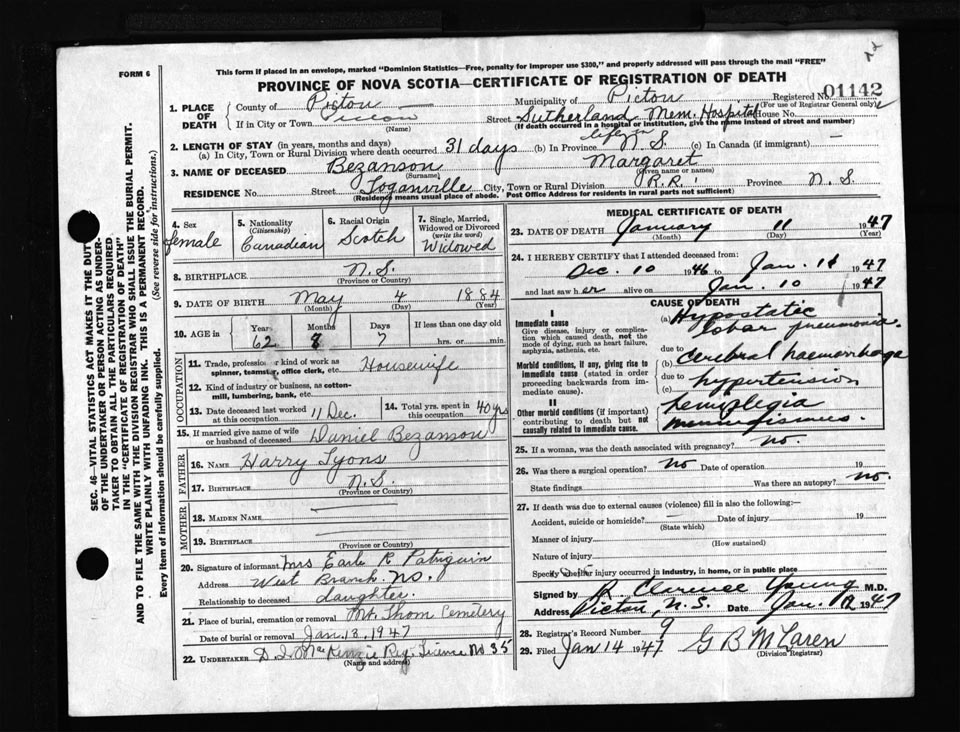 FORM 6
This form if placed in an envelope, marked "Dominion Statistics—Free, penalty for improper use $300," and properly addressed will pass through the mail "FREE"
PROVINCE OF NOVA SCOTIA—CERTIFICATE OF REGISTRATION OF DEATH
Registered No. 01142
(For use of Registrar General only)
1. PLACE OF DEATH
County of Pictou Municipality of Pictou
If in City or Town Pictou Street Sutherland Mem. Hospital House No.
(Name) (If death occurred in a hospital or institution, give the name instead of street and number)
2. LENGTH OF STAY (in years, months and days)
(a) In City, Town or Rural Division where death occurred 31 days (b) In Province life in N.S. (c) In Canada (if immigrant) —
3. NAME OF DECEASED Bezanson Margaret
(Surname) (Given name or names)
RESIDENCE No. Street Loganville City, Town or Rural Division R.R.1 Province N.S.
(Residence means usual place of abode. Post Office Address for residents in rural parts not sufficient)
4. Sex female
5. Nationality (Citizenship) Canadian
6. Racial Origin Scotch
7. Single, Married, Widowed or Divorced (write the word) Widowed
8. BIRTHPLACE N.S.
(Province or Country)
9. DATE OF BIRTH May 4 1884
(Month) (Day) (Year)
10. AGE in Years 62 Months 8 Days 7 If less than one day old hrs. or min.
OCCUPATION
11. Trade, profession or kind of work as spinner, teamster, office clerk, etc. Housewife
12. Kind of industry or business, as cotton-mill, lumbering, bank, etc.
13. Date deceased last worked at this occupation 11 Dec.
14. Total yrs. spent in this occupation 40 yrs
15. If married give name of wife or husband of deceased Daniel Bezanson
FATHER
16. NAME Harry Lyons
17. BIRTHPLACE N.S.
(Province or Country)
MOTHER
18. MAIDEN NAME —
19. BIRTHPLACE —
(Province or Country)
20. Signature of informant Mrs Earle R Patriquin
Address West Branch N.S.
Relationship to deceased daughter.
21. Place of burial, cremation or removal Mt. Thom Cemetery
Date of burial or removal Jan. 13, 1947
22. UNDERTAKER D.I. MacKenzie Reg. License No 35
(Name and address)
MEDICAL CERTIFICATE OF DEATH
23. DATE OF DEATH January 11 1947
(Month) (Day) (Year)
24. I HEREBY CERTIFY that I attended deceased from:
Dec. 10 1946 to Jan. 11 1947
and last saw her alive on Jan. 10 1947
CAUSE OF DEATH
I
Immediate cause
Give disease, injury or complication which caused death, not the mode of dying, such as heart failure, asphyxia, asthenia, etc.
(a) Hypostatic lobar pneumonia.
due to
Morbid conditions, if any, giving rise to immediate cause (stated in order proceeding backwards from immediate cause).
(b) Cerebral haemorrhage
due to
(c) hypertension
II
Other morbid conditions (if important) contributing to death but not causally related to immediate cause.
hemiplegia
25. If a woman, was the death associated with pregnancy? no.
26. Was there a surgical operation? no Date of operation 19
State findings Was there an autopsy? no.
27. If death was due to external causes (violence) fill in also the following:—
Accident, suicide or homicide? — Date of injury 19
(State which)
Manner of injury
(How sustained)
Nature of injury
Specify whether injury occurred in industry, in home, or in public place
Signed by R Clarence Young M.D.
Address Pictou, N.S. Date Jan. 12 1947
28. Registrar's Record Number 9
29. Filed Jan 14 1947 G B McLaren
(Division Registrar)
SEC. 46—VITAL STATISTICS ACT MAKES IT THE DUTY
OF THE UNDERTAKER OR PERSON ACTING AS UNDER-
TAKER TO OBTAIN ALL THE PARTICULARS REQUIRED
IN THE "CERTIFICATE OF REGISTRATION OF DEATH"
AND TO FILE THE SAME WITH THE DIVISION REGISTRAR WHO SHALL ISSUE THE BURIAL PERMIT.
WRITE PLAINLY WITH UNFADING INK. THIS IS A PERMANENT RECORD.
Every item of information should be carefully supplied. (See reverse side for instructions.)